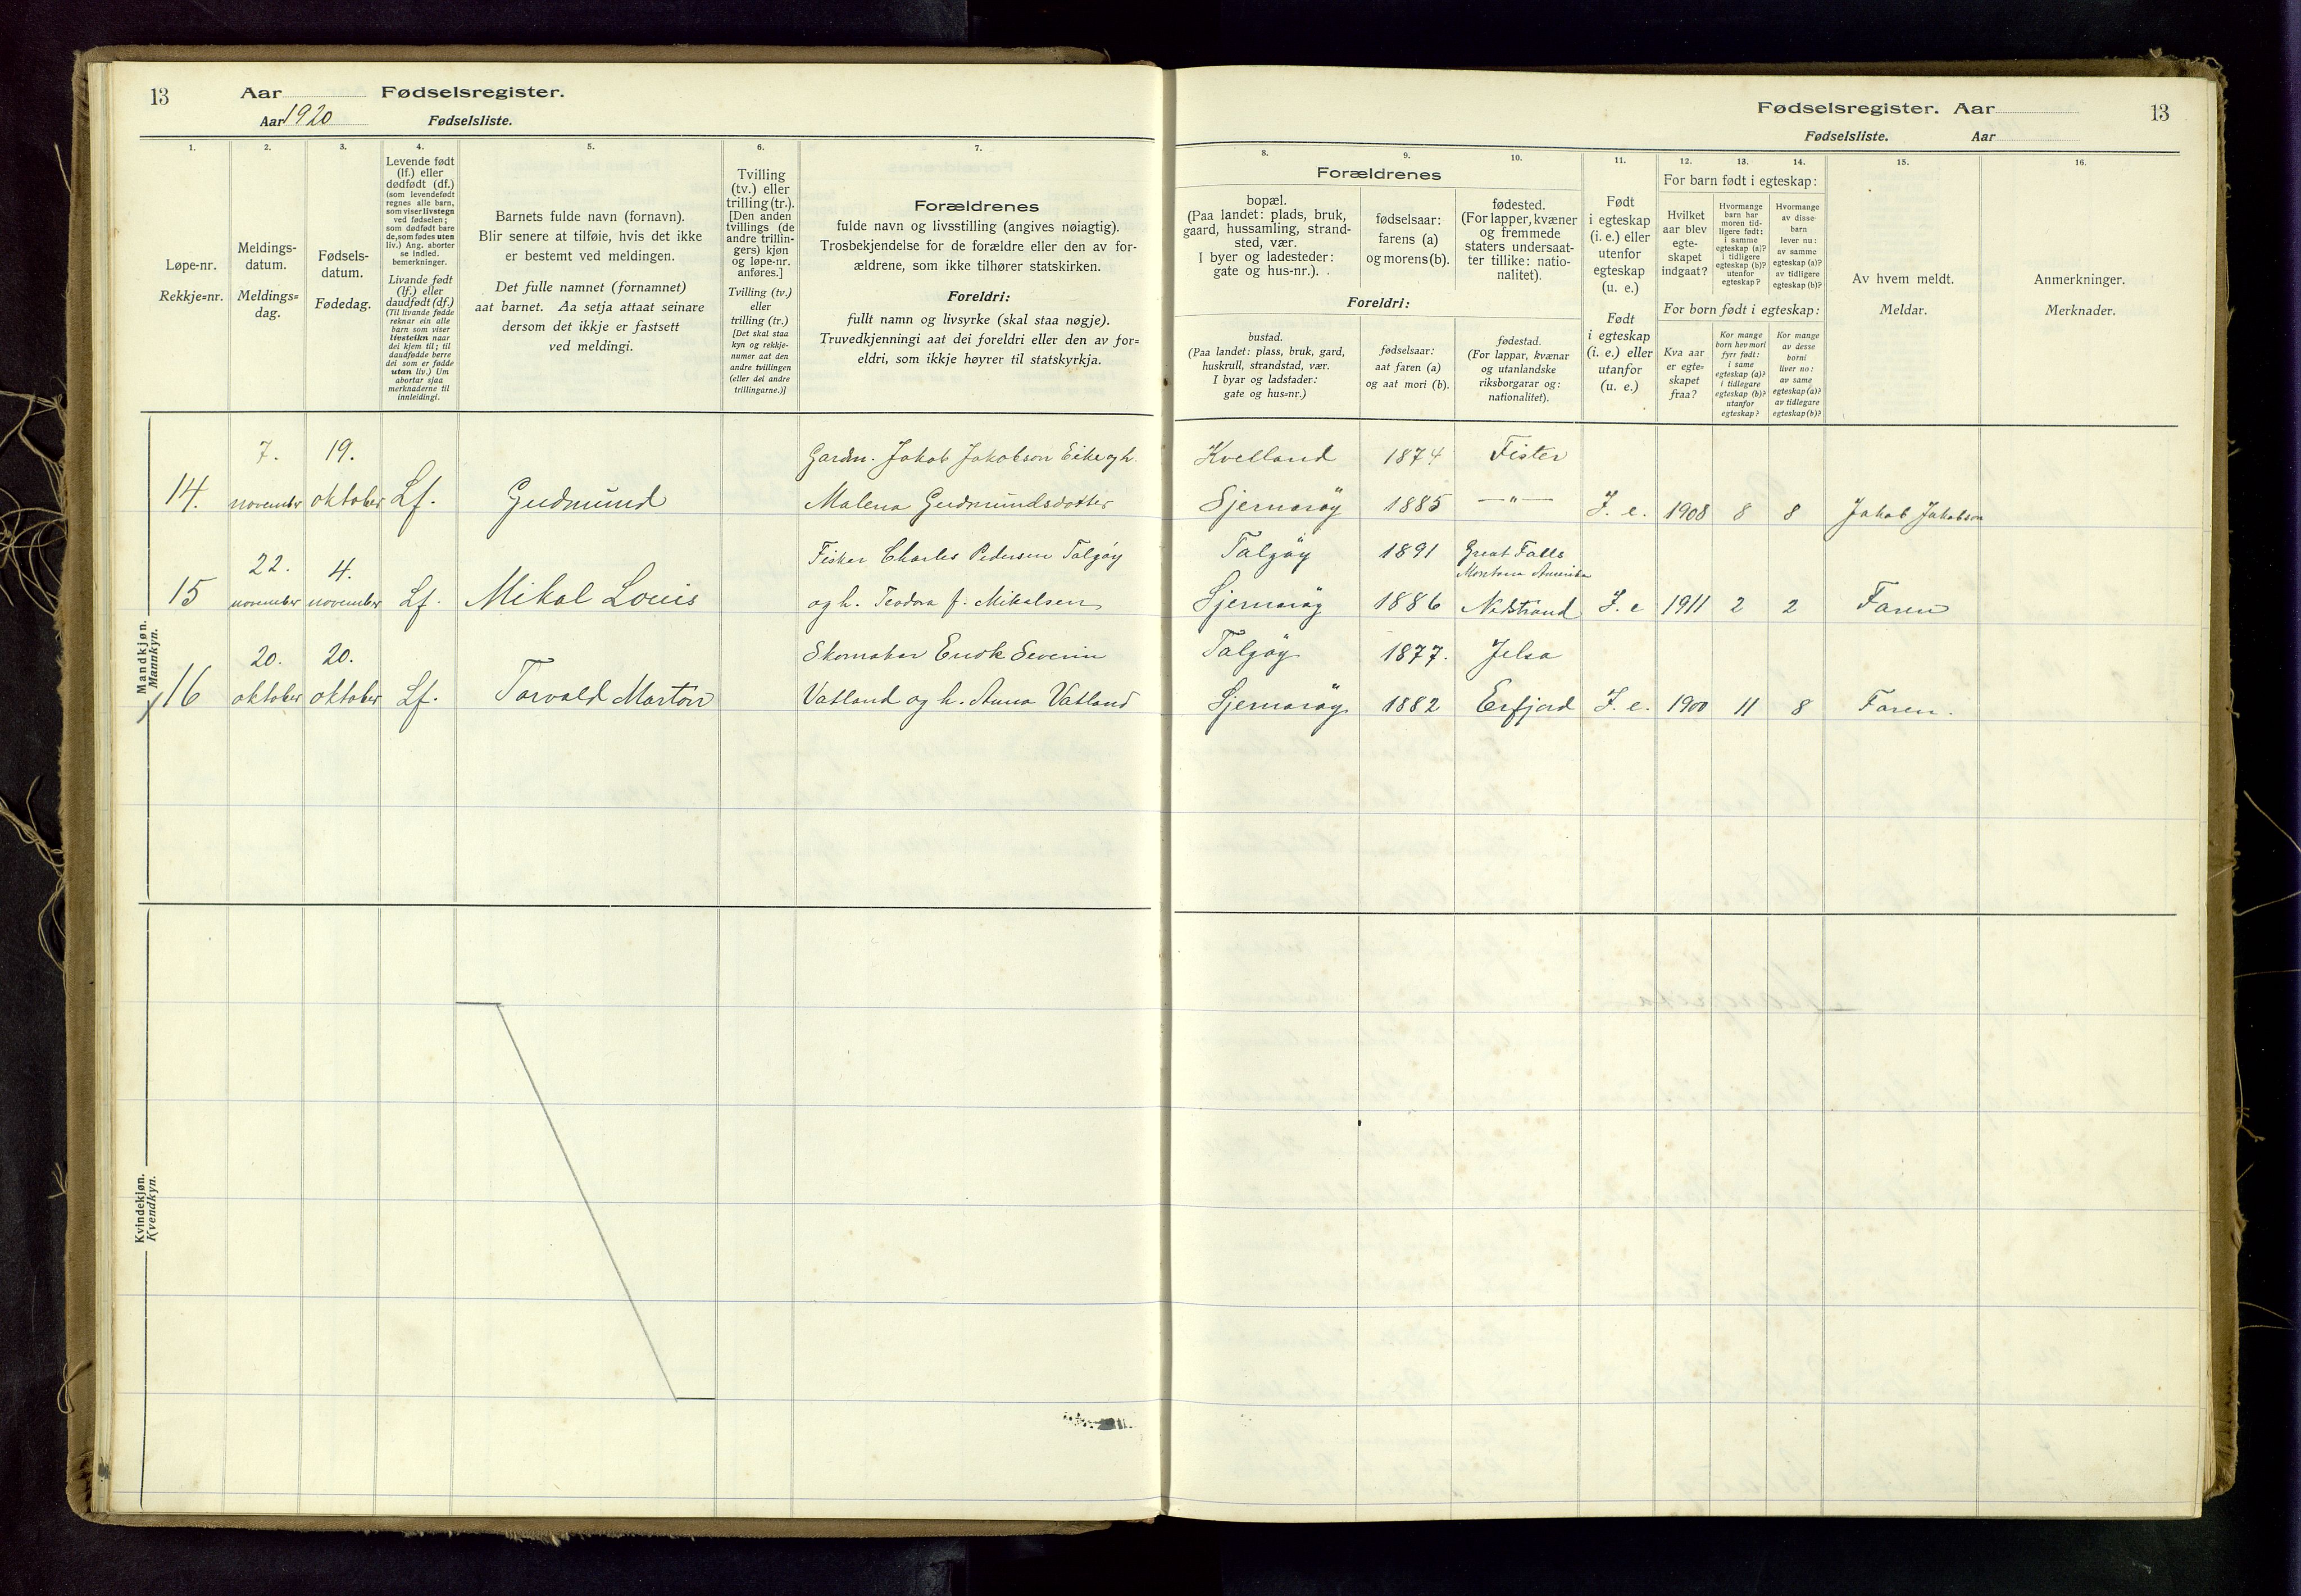 13 Aar Fødselsregister.
Aar 1920 Fødselsliste.
1.
Løpe-nr.
Rekkje=nr.
2.
Meldings-
datum.
Meldings=
dag.
3.
Fødsels-
datum.
Fødedag.
4.
Levende født
(lf.) eller
dødfødt (df.)
(som levendefødt
regnes alle barn,
som viser livstegn
ved fødselen;
som dødfødt bare
de, som fødes uten
liv.) Ang. aborter
se indled.
bemerkninger.
Livande født
(lf.) eller
daudfødt (df.)
(Til livande fødde
reknar ein alle
barn som viser
livsteikn naar
dei kjem til; til
daudfødde berre
dei som er fødde
utan liv.) Um
abortar sjaa
merknaderne til
innleidingi.
5.
Barnets fulde navn (fornavn).
Blir senere at tilføie, hvis det ikke
er bestemt ved meldingen.
Det fulle namnet (fornamnet)
aat barnet. Aa setja attaat seinare
dersom det ikkje er fastsett
ved meldingi.
6.
Tvilling
(tv.) eller
trilling (tr.).
[Den anden
tvillings (de
andre trillin-
gers) kjøn
og løpe-nr.
anføres.]
Tvilling (tv.)
eller
trilling (tr.)
[Det skal staa
kyn og rekkje-
numer aat den
andre tvillingen
(eller dei andre
trillingarne.)]
7.
Forældrenes
fulde navn og livsstilling (angives nøiagtig).
Trosbekjendelse for de forældre eller den av for-
ældrene, som ikke tilhører statskirken.
Foreldri:
fullt namn og livsyrke (skal staa nøgje).
Truvedkjenningi aat dei foreldri eller den av for=
eldri, som ikkje høyrer til statskyrkja.
Mandkjøn.
Mannkyn.
14. 7. november 19. oktober Lf. Gudmund
Gardm. Jakob Jakobson Eike og h.
Malena Gudmundsdotter
15 22. november 4. november Lf. Mikal Louis
Fiskar Charles Pedersen Talgöy
og h. Teodora f. Mikalsen
16 20. oktober 20. oktober Lf. Torvald Marton
Skomakar Enok Severin
Vatland og h. Anna Vatland
Kvindekjøn.
Kvendkyn.
Fødselsregister. Aar 13
Fødselsliste. Aar
8.
Forældrenes
bopæl.
(Paa landet: plads, bruk,
gaard, hussamling, strand-
sted, vær.
I byer og ladesteder:
gate og hus-nr.).
Foreldri:
bustad.
(Paa landet: plass, bruk, gard,
huskrull, strandstad, vær.
I byar og ladstader:
gate og hus=nr.)
9.
fødselsaar:
farens (a)
og morens (b).
fødselsaar:
aat faren (a)
og aat mori (b).
10.
fødested.
(For lapper, kvæner
og fremmede
staters undersaat-
ter tillike: natio-
nalitet).
fødestad.
(For lappar, kvænar
og utanlandske
riksborgarar og:
nationalitet).
11.
Født
i egteskap
(i. e.) eller
utenfor
egteskap
(u. e.)
Født
i egteskap
(i. e.) eller
utanfor
(u. e.)
12. 13. 14.
For barn født i egteskap:
Hvilket
aar blev
egte-
skapet
indgaat?
Hvormange
barn har
moren tid-
ligere født:
i samme
egteskap (a)?
i tidligere
egteskap (b)?
utenfor
egteskap?
Hvormange
av disse
barn
lever nu:
av samme
egteskap (a)?
av tidligere
egteskap (b)?
For born født i egteskap:
Kva aar
er egte=
skapet
fraa?
Kor mange
born hev mori
fyrr født:
i same
egteskap (a)?
i tidlegare
egteskap (b)?
utanfor
egteskap?
Kor mange
av desse
borni
liver no:
av same
egteskap (a)?
av tidlegare
egteskap (b)?
15.
Av hvem meldt.
Meldar.
16.
Anmerkninger.
Merknader.
Kvelland 1874 Fister
Sjernaröy 1885 —"— I. e. 1908 8 8 Jakob Jakobson
Talgöy 1891 Great Falls
Montana Amerika
Sjernaröy 1886 Nedstrand I. e 1911 2 2 Faren
Talgöy 1877. Jelsa
Sjernaröy 1882 Erfjord I. e. 1900 11 8 Faren.